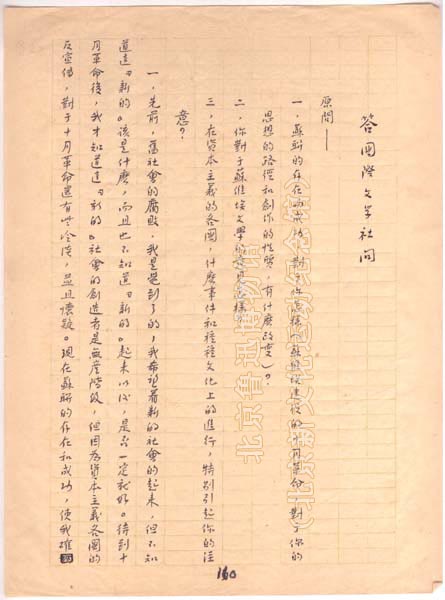 答國際文學社問
原問——
一，蘇聯的存在與成功，對于你怎樣（蘇維埃建設的十月革命，對于你的
思想的路徑和創作的性質，有什麽改變）？
二，你對于蘇維埃文學的意見怎樣？
三，在資本主義的各國，什麽事件和種種文化上的進行，特別引起你的注
意？
一，先前，舊社會的腐敗，我是覺到了的，我希望着新的社會的起來，但不知
道這『新的』該是什麽，而且也不知道『新的』起來以後，是否一定就好。待到十
月革命後，我才知道這『新的』社會的創造者是無產階級，但因爲資本主義各國的
反宣傳，對于十月革命還有些冷淡，並且懷疑。現在蘇聯的存在和成功，使我確
160
北京鲁迅博物馆
（北京新文化运动纪念馆）